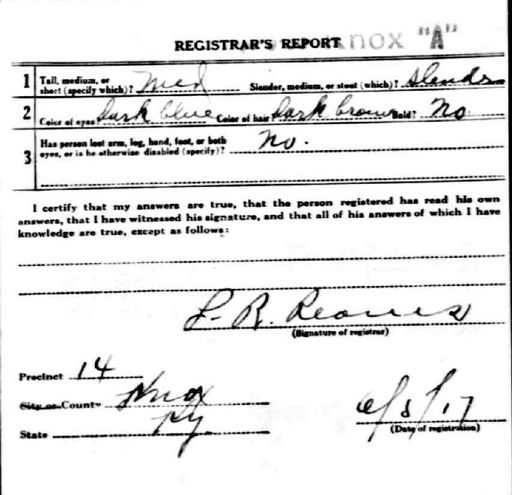 Knox "A"
REGISTRAR'S REPORT
1 Tall, medium, or short (specify which)? Med Slender, medium, or stout (which)? Slender
2 Color of eyes dark blue Color of hair dark brown Bald? No
3 Has person lost arm, leg, hand, foot, or both eyes, or is he otherwise disabled (specify)? No.
I certify that my answers are true, that the person registered has read his own
answers, that I have witnessed his signature, and that all of his answers of which I have
knowledge are true, except as follows:
L. R. Reams
(Signature of registrar)
Precinct 14
City or County Knox
State Ky
6/5/17
(Date of registration)